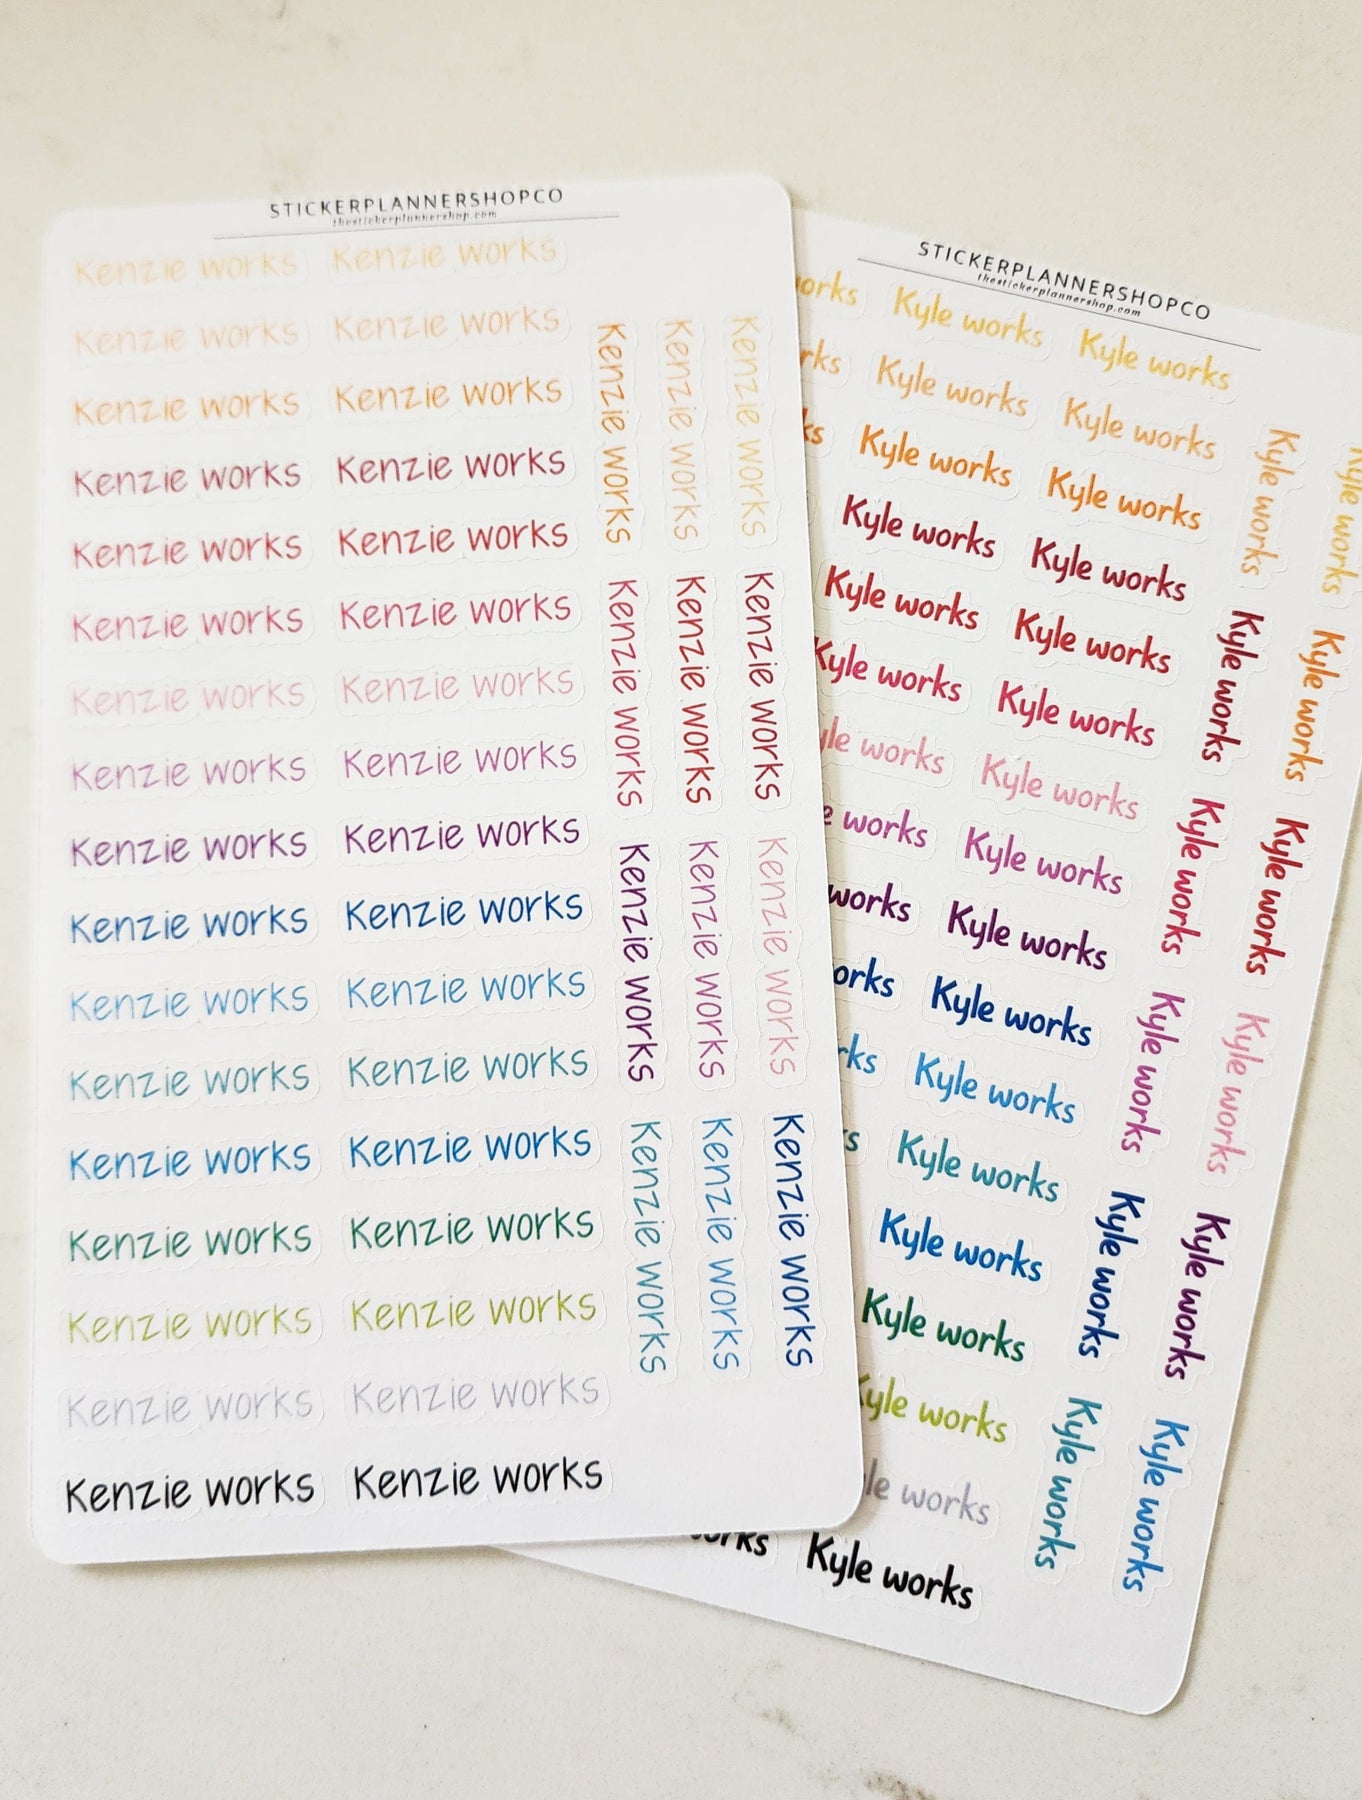 STICKERPLANNERSHOPCO
thestickerplannershop.com
Kenzie works Kenzie works
Kenzie works Kenzie works
Kenzie works Kenzie works
Kenzie works Kenzie works
Kenzie works Kenzie works
Kenzie works Kenzie works
Kenzie works Kenzie works
Kenzie works Kenzie works
Kenzie works Kenzie works
Kenzie works Kenzie works
Kenzie works Kenzie works
Kenzie works Kenzie works
Kenzie works Kenzie works
Kenzie works Kenzie works
Kenzie works Kenzie works
Kenzie works Kenzie works
Kenzie works Kenzie works
Kenzie works Kenzie works Kenzie works
Kenzie works Kenzie works Kenzie works
Kenzie works Kenzie works Kenzie works
Kenzie works Kenzie works Kenzie works
STICKERPLANNERSHOPCO
thestickerplannershop.com
orks Kyle works Kyle works
rks Kyle works Kyle works
ks Kyle works Kyle works
Kyle works Kyle works
Kyle works Kyle works
Kyle works Kyle works
yle works Kyle works
e works Kyle works
works Kyle works
orks Kyle works
rks Kyle works
s Kyle works
Kyle works
Kyle works
Kyle works
le works
works Kyle works
Kyle works Kyle works
Kyle works Kyle works
Kyle works Kyle works
Kyle works Kyle works
Kyle works Kyle works
Kyle works Kyle works